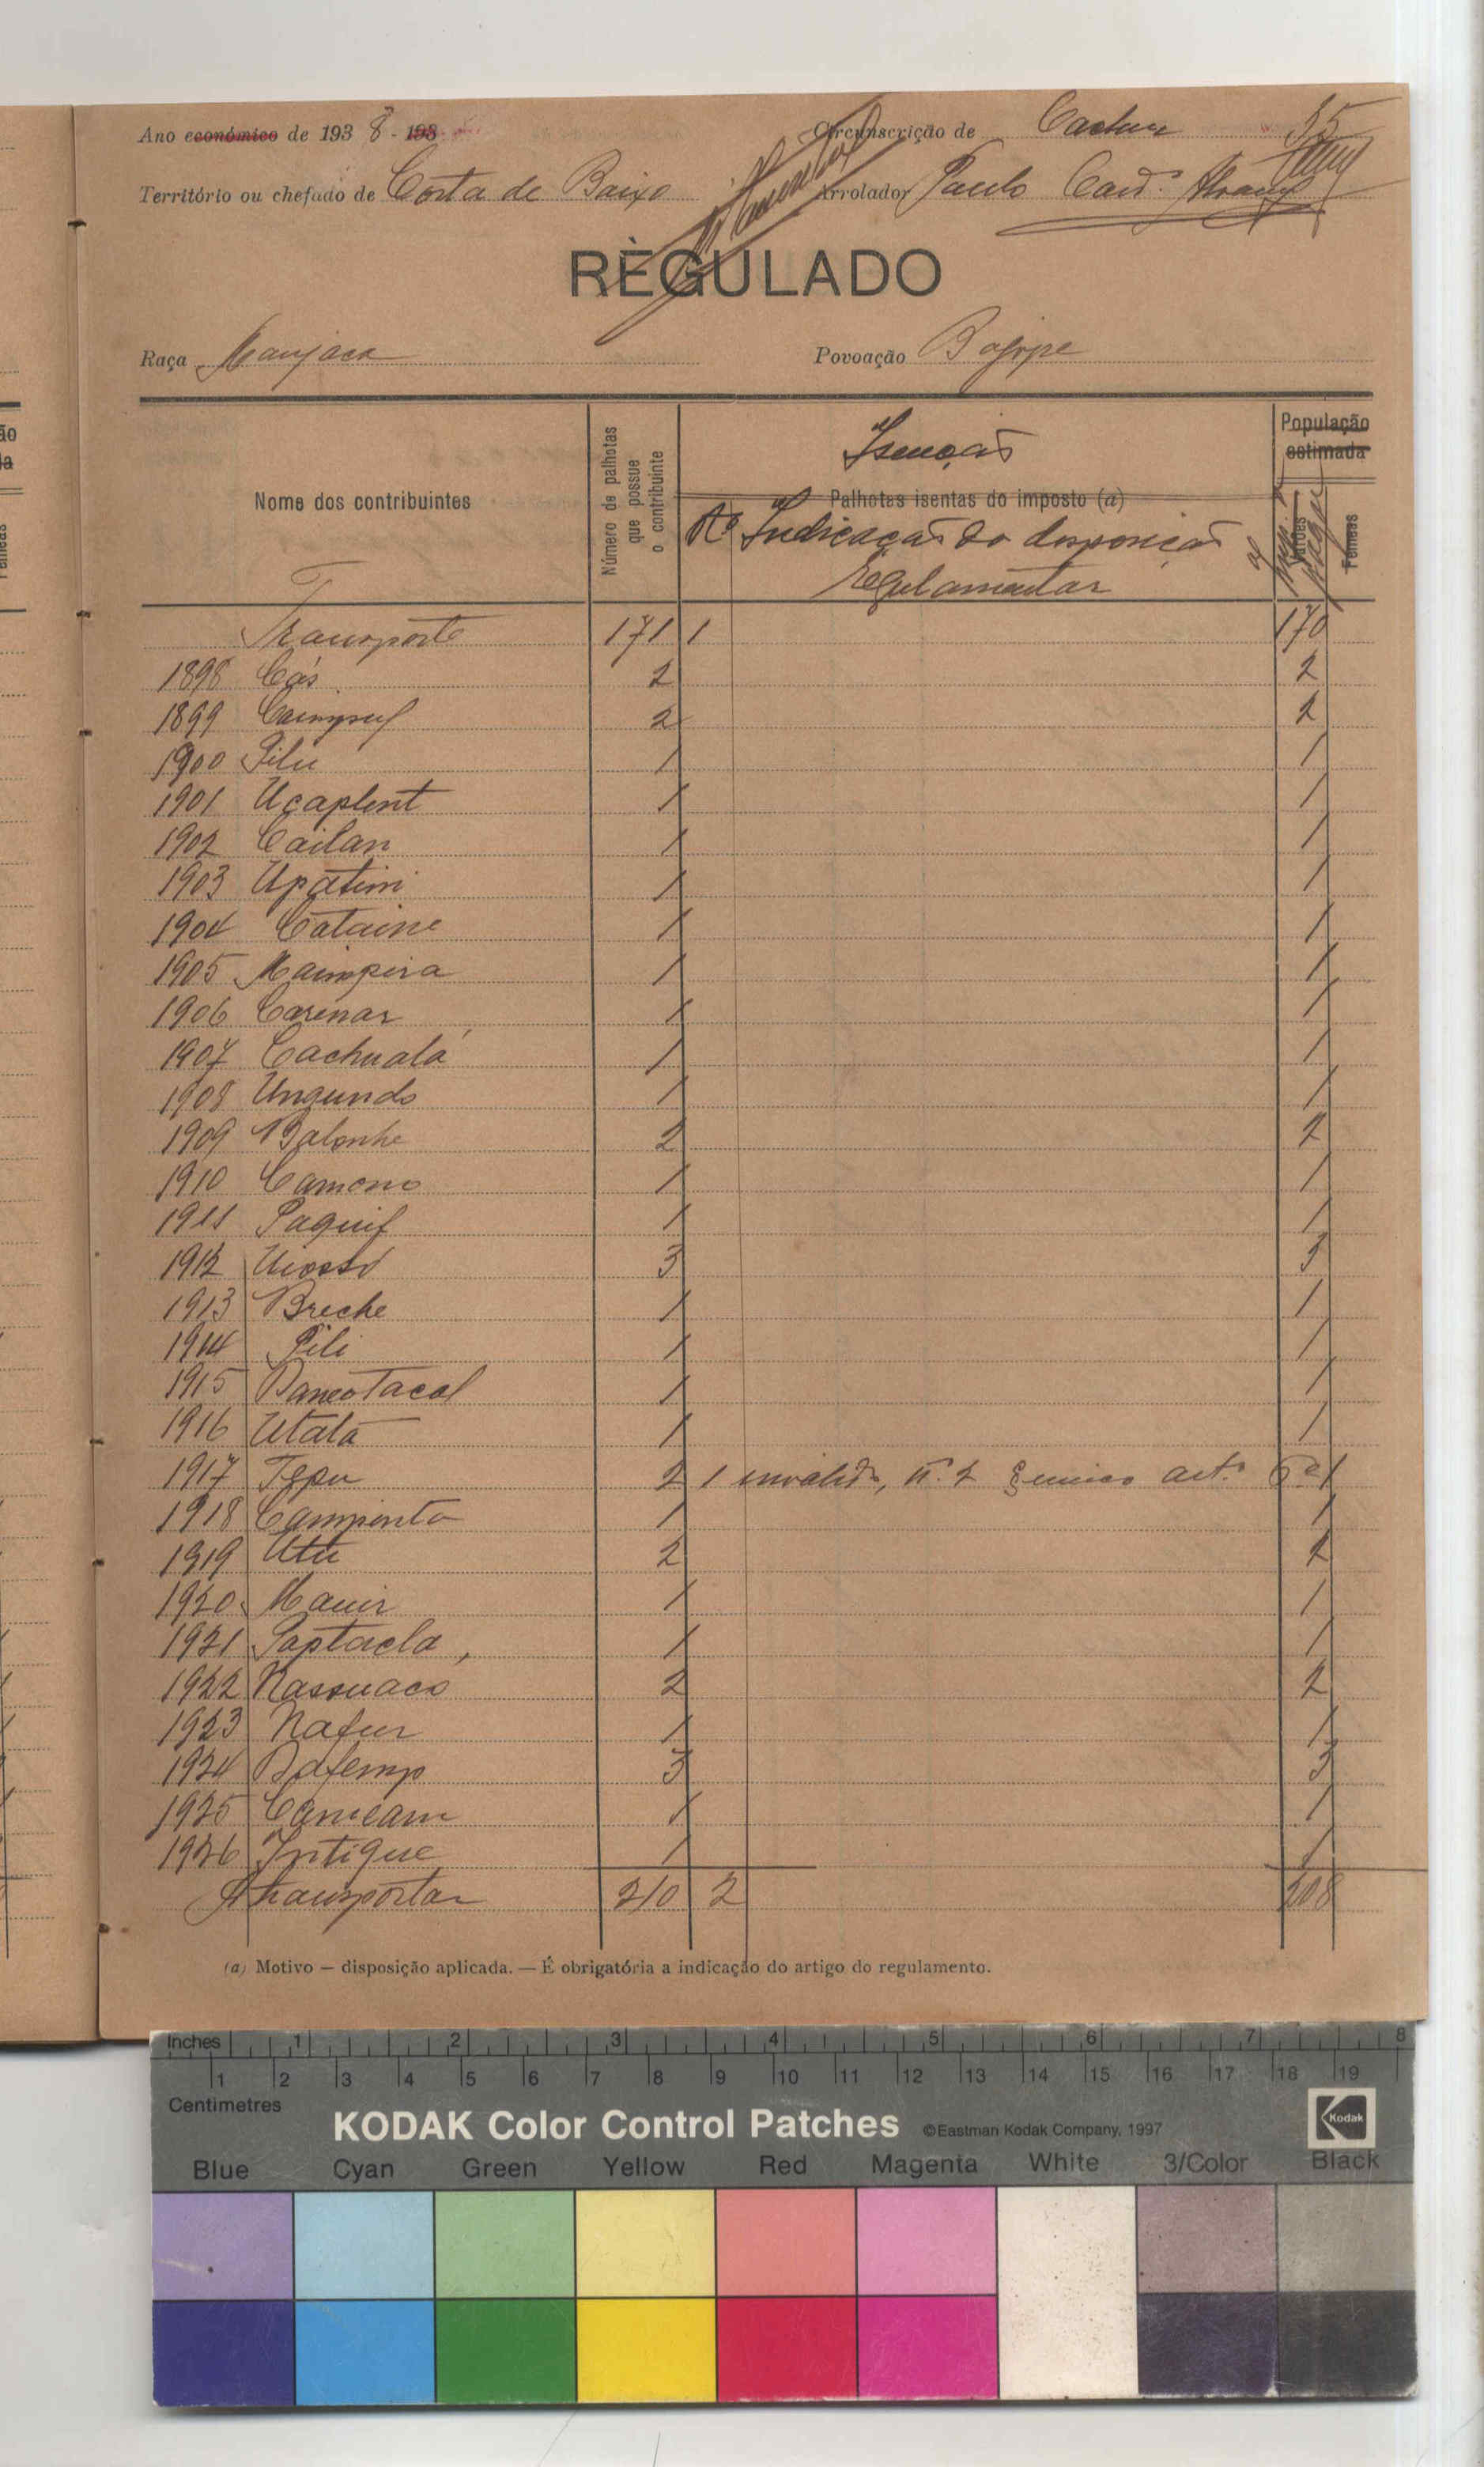 Ano económico de 1938 - 193
Circunscrição de Cacheu 35
Território ou chefado de Costa de Baixo
Arrolador Paulo Card.º
REGULADO
Raça Manjaca
Povoação
Nome dos contribuintes
Número de palhotas que possue o contribuinte
Isenção
Palhotas isentas do imposto (a)
Nº Indicação da disposição regulamentar
População estimada
Varões
Fêmeas
Transporte 171 1 170
1898 Cás 2 2
1899 2 2
1900 Pilu 1 1
1901 Uçaplent 1 1
1902 Cailan 1 1
1903 Upatim 1 1
1904 Cataine 1 1
1905 Maimpira 1 1
1906 Carenar 1 1
1907 Cachualá 1 1
1908 Ungundo 1 1
1909 Balonhe 2 2
1910 Camono 1 1
1911 Paquif 1 1
1912 Uiossó 3 3
1913 Breche 1 1
1914 Pili 1 1
1915 1 1
1916 Utatá 1 1
1917 Tepu 2 1 invalido, n.º 2 § unico art.º 6º 1
1918 Campinta 1 1
1919 Utú 2 2
1920 Mauir 1 1
1921 Saptacla 1 1
1922 Nassuaco 2 2
1923 Nafur 1 1
1924 Dafemp 3 3
1925 Cameam 1 1
1926 Intigue 1 1
A transportar 210 2 208
(a) Motivo — disposição aplicada. — É obrigatória a indicação do artigo do regulamento.
Inches 1 2 3 4 5 6 7 8
1 2 3 4 5 6 7 8 9 10 11 12 13 14 15 16 17 18 19
Centimetres
KODAK Color Control Patches ©Eastman Kodak Company, 1997 Kodak
Blue Cyan Green Yellow Red Magenta White 3/Color Black